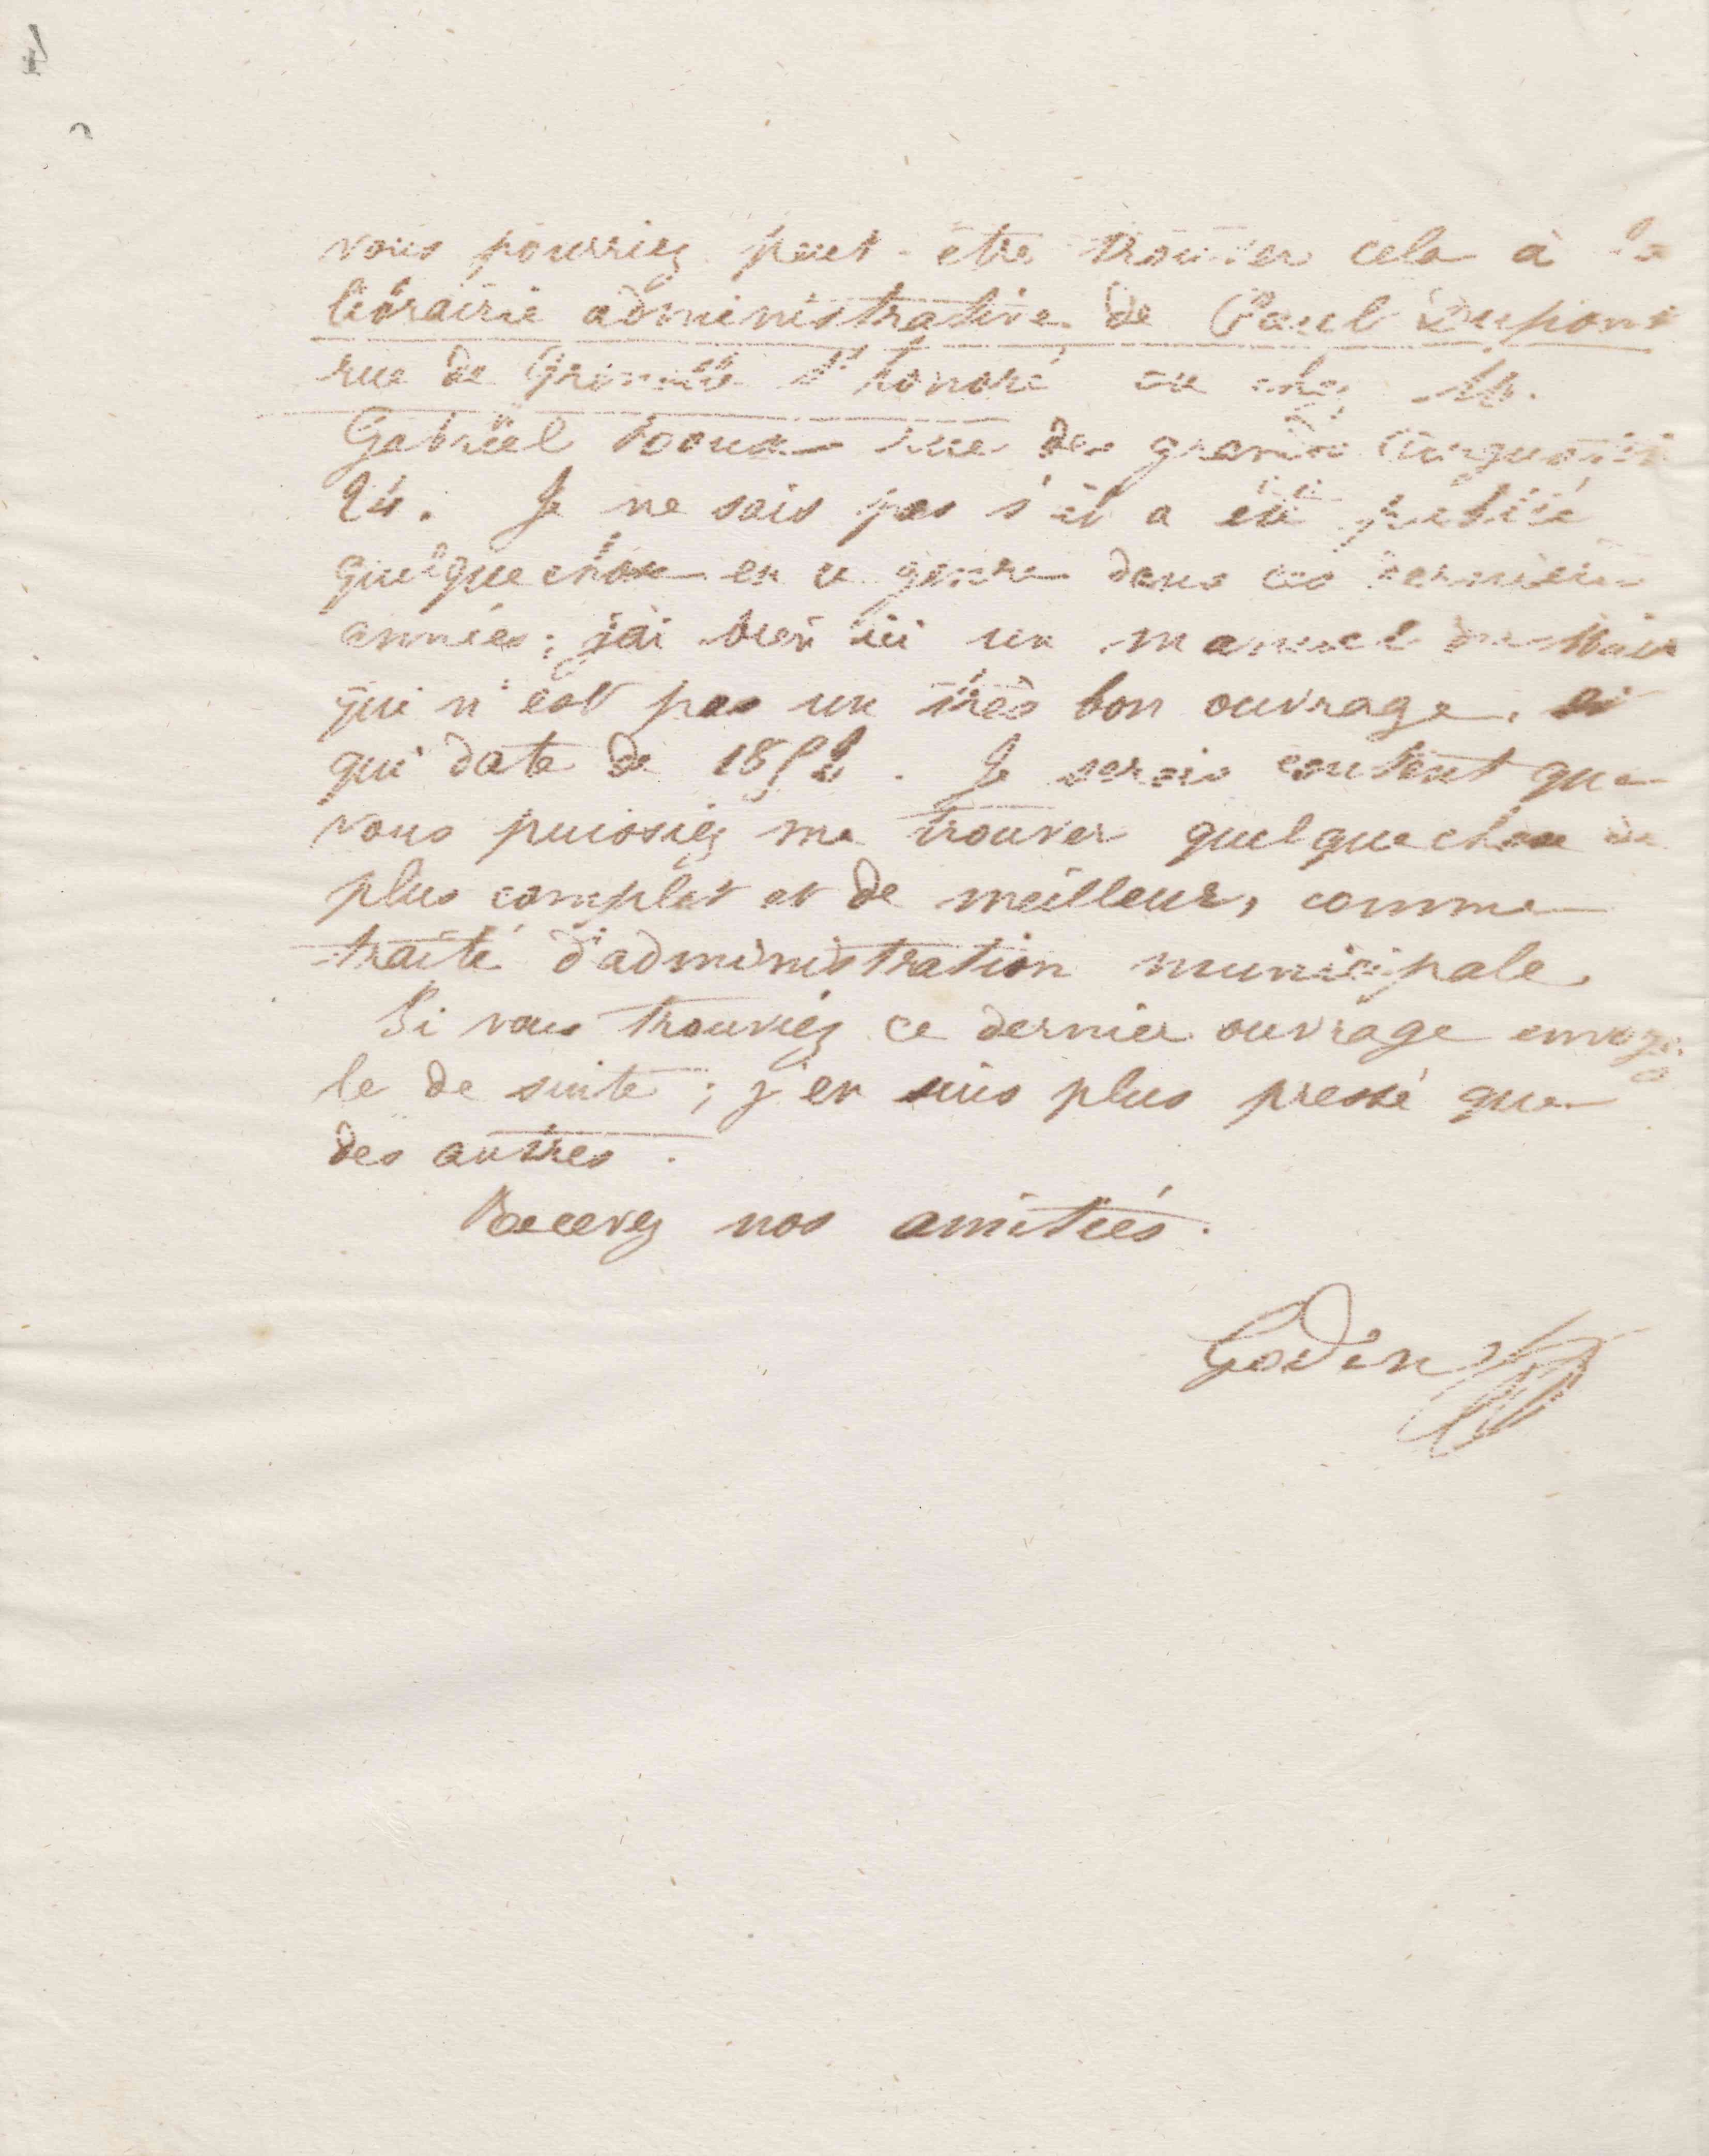 vous pourriez peut-être trouver cela à la
librairie administrative de Paul Dupont
rue de Grenelle St honoré ou chez M.
Gabriel Roux rue des grands Augustins
24. Je ne sais pas s'il a été publié
quelque chose en ce genre dans ces dernières
années ; j'ai bien ici un manuel du Maire
qui n'est pas un très bon ouvrage, et
qui date de . Je serais content que
vous puissiez me trouver quelque chose de
plus complet et de meilleur, comme
traité d'administration municipale.
Si vous trouviez ce dernier ouvrage envoyez
le de suite ; j'en suis plus pressé que
des autres.
Recevez nos amitiés.
Godin